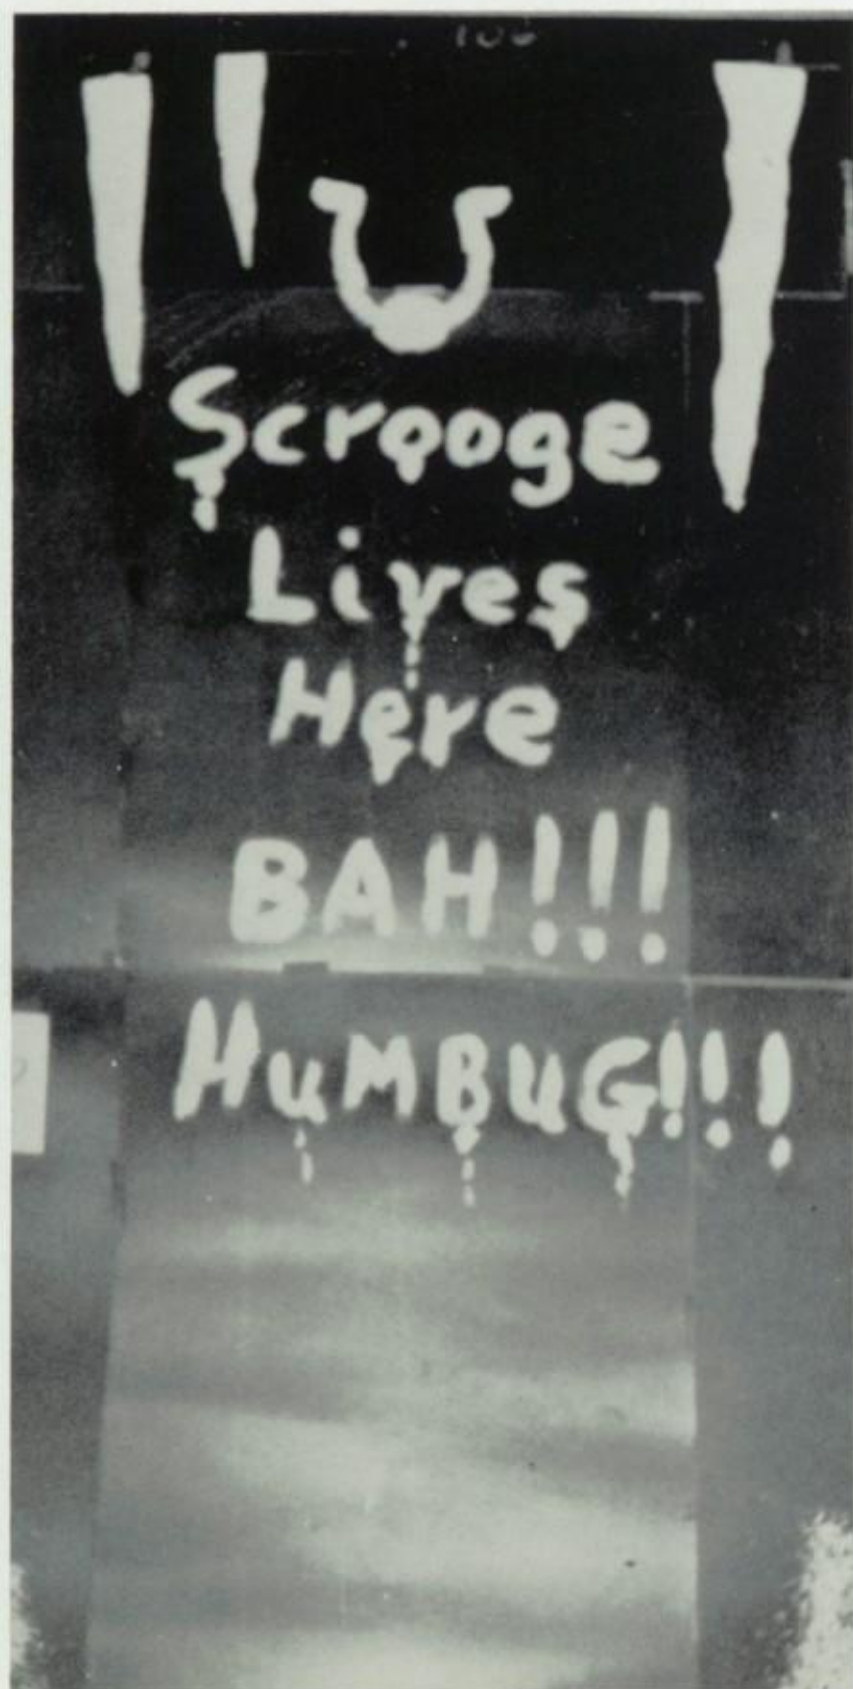 Scrooge
Lives
Here
BAH!!!
HuMBuG!!!